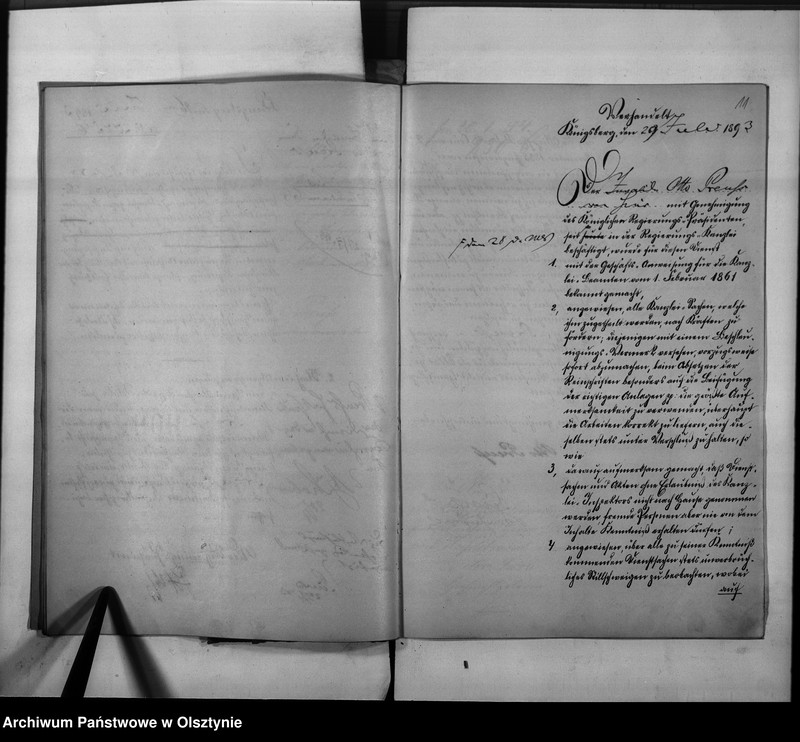 11.
Verhandelt
Königsberg, den 29 Juli 1893
Der Invalide Otto
von hier mit Genehmigung
des Königlichen Regierungs-Präsidenten,
seit heute in der Regierungs-Kanzlei
d. Mts
beschäftigt, wurde für diesen Dienst
1. mit der Geschäfts-Anweisung für die Kanz-
lei-Beamten vom 1. Februar 1861
bekannt gemacht,
2, angewiesen, alle Kanzlei-Sachen, welche
ihm zugetheilt werden, nach Kräften zu
fördern; diejenigen mit einem Beschleu-
nigungs-Vermerk versehen, vorzugsweise
sofort abzumachen, beim Absetzen der
Reinschriften besonders auf die Beifügung
der richtigen Anlagen pp. die größte Auf-
merksamkeit zu verwenden, überhaupt
die Arbeiten korrekt zu liefern, auch die-
selben stets unter Verschluß zu halten, so
wie
3, darauf aufmerksam gemacht, daß Dienst-
sachen und Akten ohne Erlaubniß des Kanz-
lei-Inspektors nicht nach Hause genommen
werden, fremde Personen aber nie von dem
Inhalte Kenntniß erhalten dürfen;
4, angewiesen, über alle zu seiner Kenntniß
kommenden Dienstsachen stets unverbrüch-
liches Stillschweigen zu beobachten, wobei
auf
Archiwum Państwowe w Olsztynie